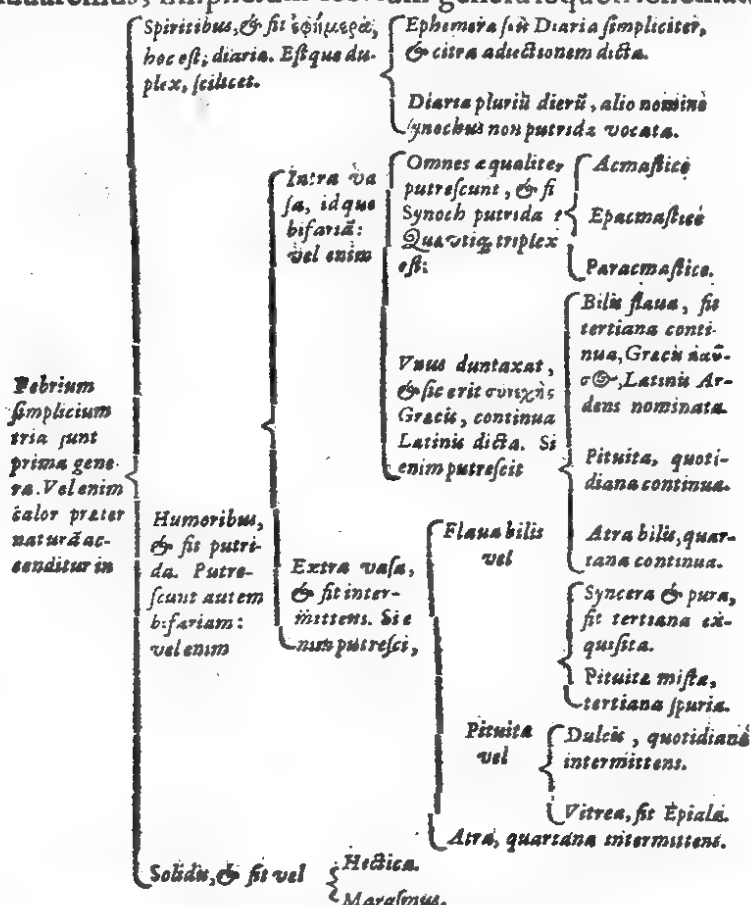 Febrium
simplicium
tria sunt
prima gene-
ra. Vel enim
calor præter
naturā ac-
cenditur in
Spiritibus, & fit ἐφήμερα,
hoc est, diaria. Estque du-
plex, scilicet.
Ephemera seu Diaria simpliciter,
& citra adiectionem dicta.
Diaria pluriū dierū, alio nomine
synochus non putrida vocata.
Humoribus,
& fit putri-
da. Putre-
scunt autem
bifariam:
vel enim
Intra va
sa, idque
bifariā:
vel enim
Omnes æqualiter
putrescunt, & fi
Synoch putrida :
triplex
est:
Acmastice
Epacmastice
Paracmastice.
Vnus duntaxat,
& sic erit συνεχὴς
Græcis, continua
Latinis dicta. Si
enim putrescit
Bilis flaua, fit
tertiana conti-
nua, Græcis καῦ-
σος, Latinis Ar-
dens nominata.
Pituita, quoti-
diana continua.
Atra bilis, quar-
tana continua.
Extra vasa,
& fit inter-
mittens. Si e
nim putresci,
Flaua bilis
vel
Syncera & pura,
fit tertiana ex-
quisita.
Pituitæ mista,
tertiana spuria.
Pituita
vel
Dulcis, quotidiana
intermittens.
Vitrea, fit Epiala.
Atra, quartana intermittens.
Solidis, & fit vel
Hectica.
Marasmus.